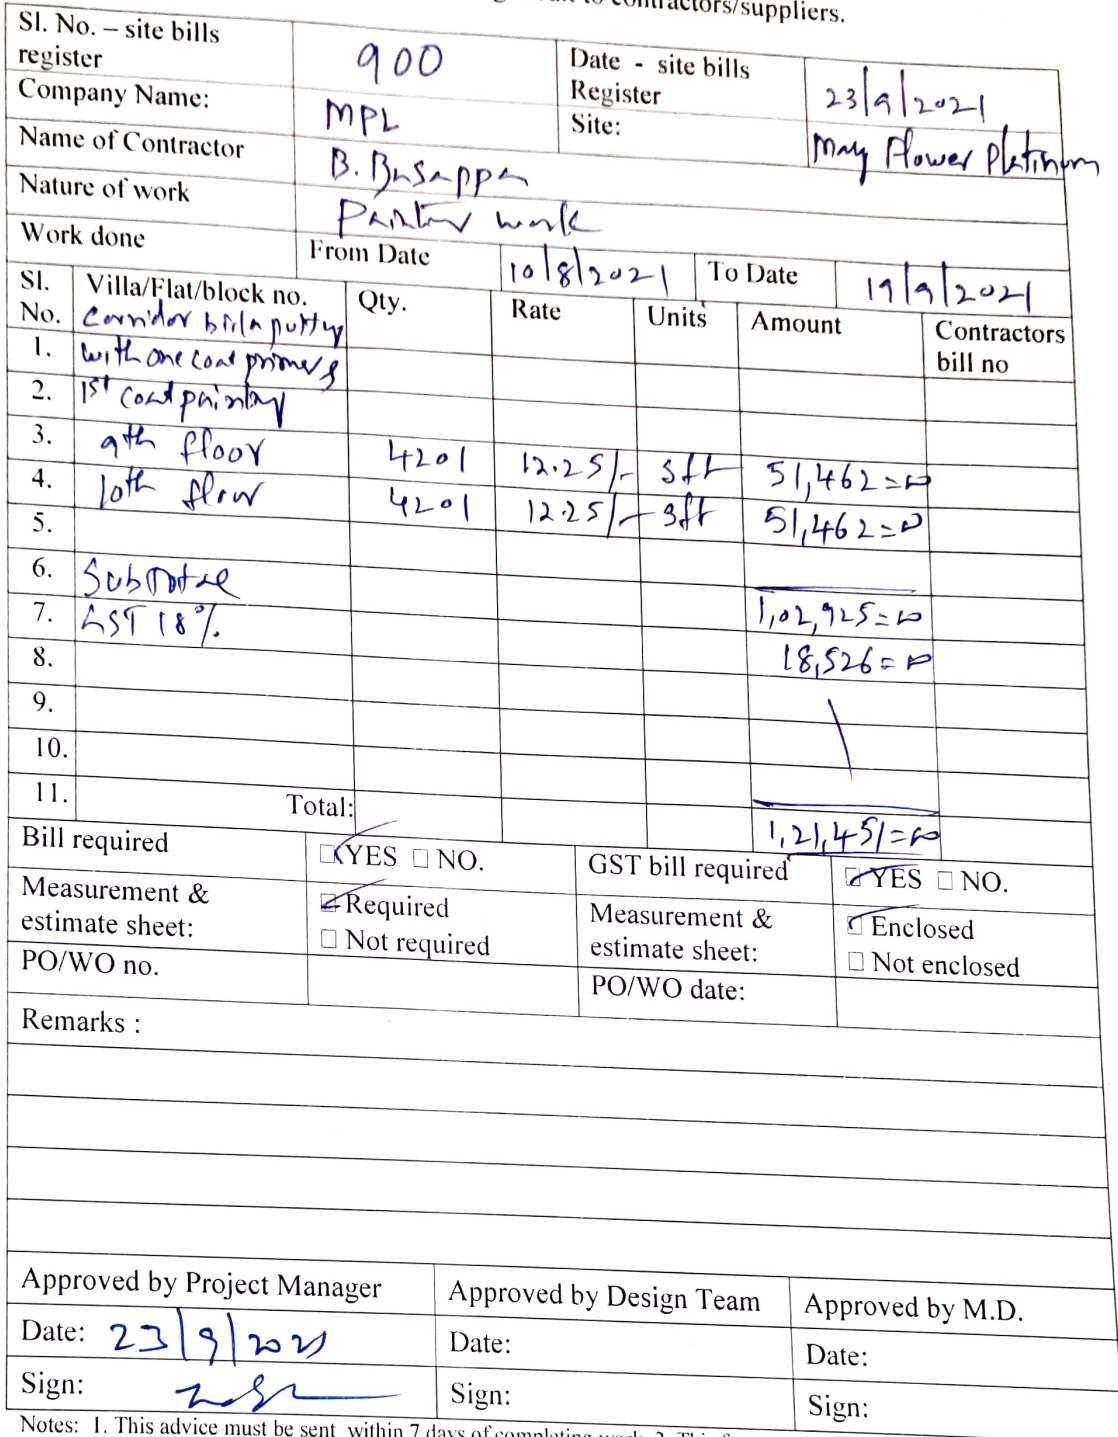 contractors/suppliers.
Sl. No. – site bills register 900 Date - site bills Register 23/9/2021
Company Name: MPL Site: May Flower Platinum
Name of Contractor B. Basappa
Nature of work Painter work
Work done From Date 10/8/2021 To Date 19/9/2021
Sl. No. Villa/Flat/block no. Qty. Rate Units Amount Contractors bill no
Corridor birla putty
1. with one coat primer &
2. 1st coat painting
3. 9th floor 4201 12.25/- sft 51,462=00
4. 10th floor 4201 12.25/- sft 51,462=00
5.
6. Sub Total 1,02,925=00
7. GST 18% 18,526=00
8.
9.
10.
11. Total: 1,21,451=00
Bill required YES NO. GST bill required YES NO.
Measurement & estimate sheet: Required Not required Measurement & estimate sheet: Enclosed Not enclosed
PO/WO no. PO/WO date:
Remarks :
Approved by Project Manager Approved by Design Team Approved by M.D.
Date: 23/9/2021 Date: Date:
Sign: Sign: Sign:
Notes: 1. This advice must be sent within 7 days of completing work. 2. This